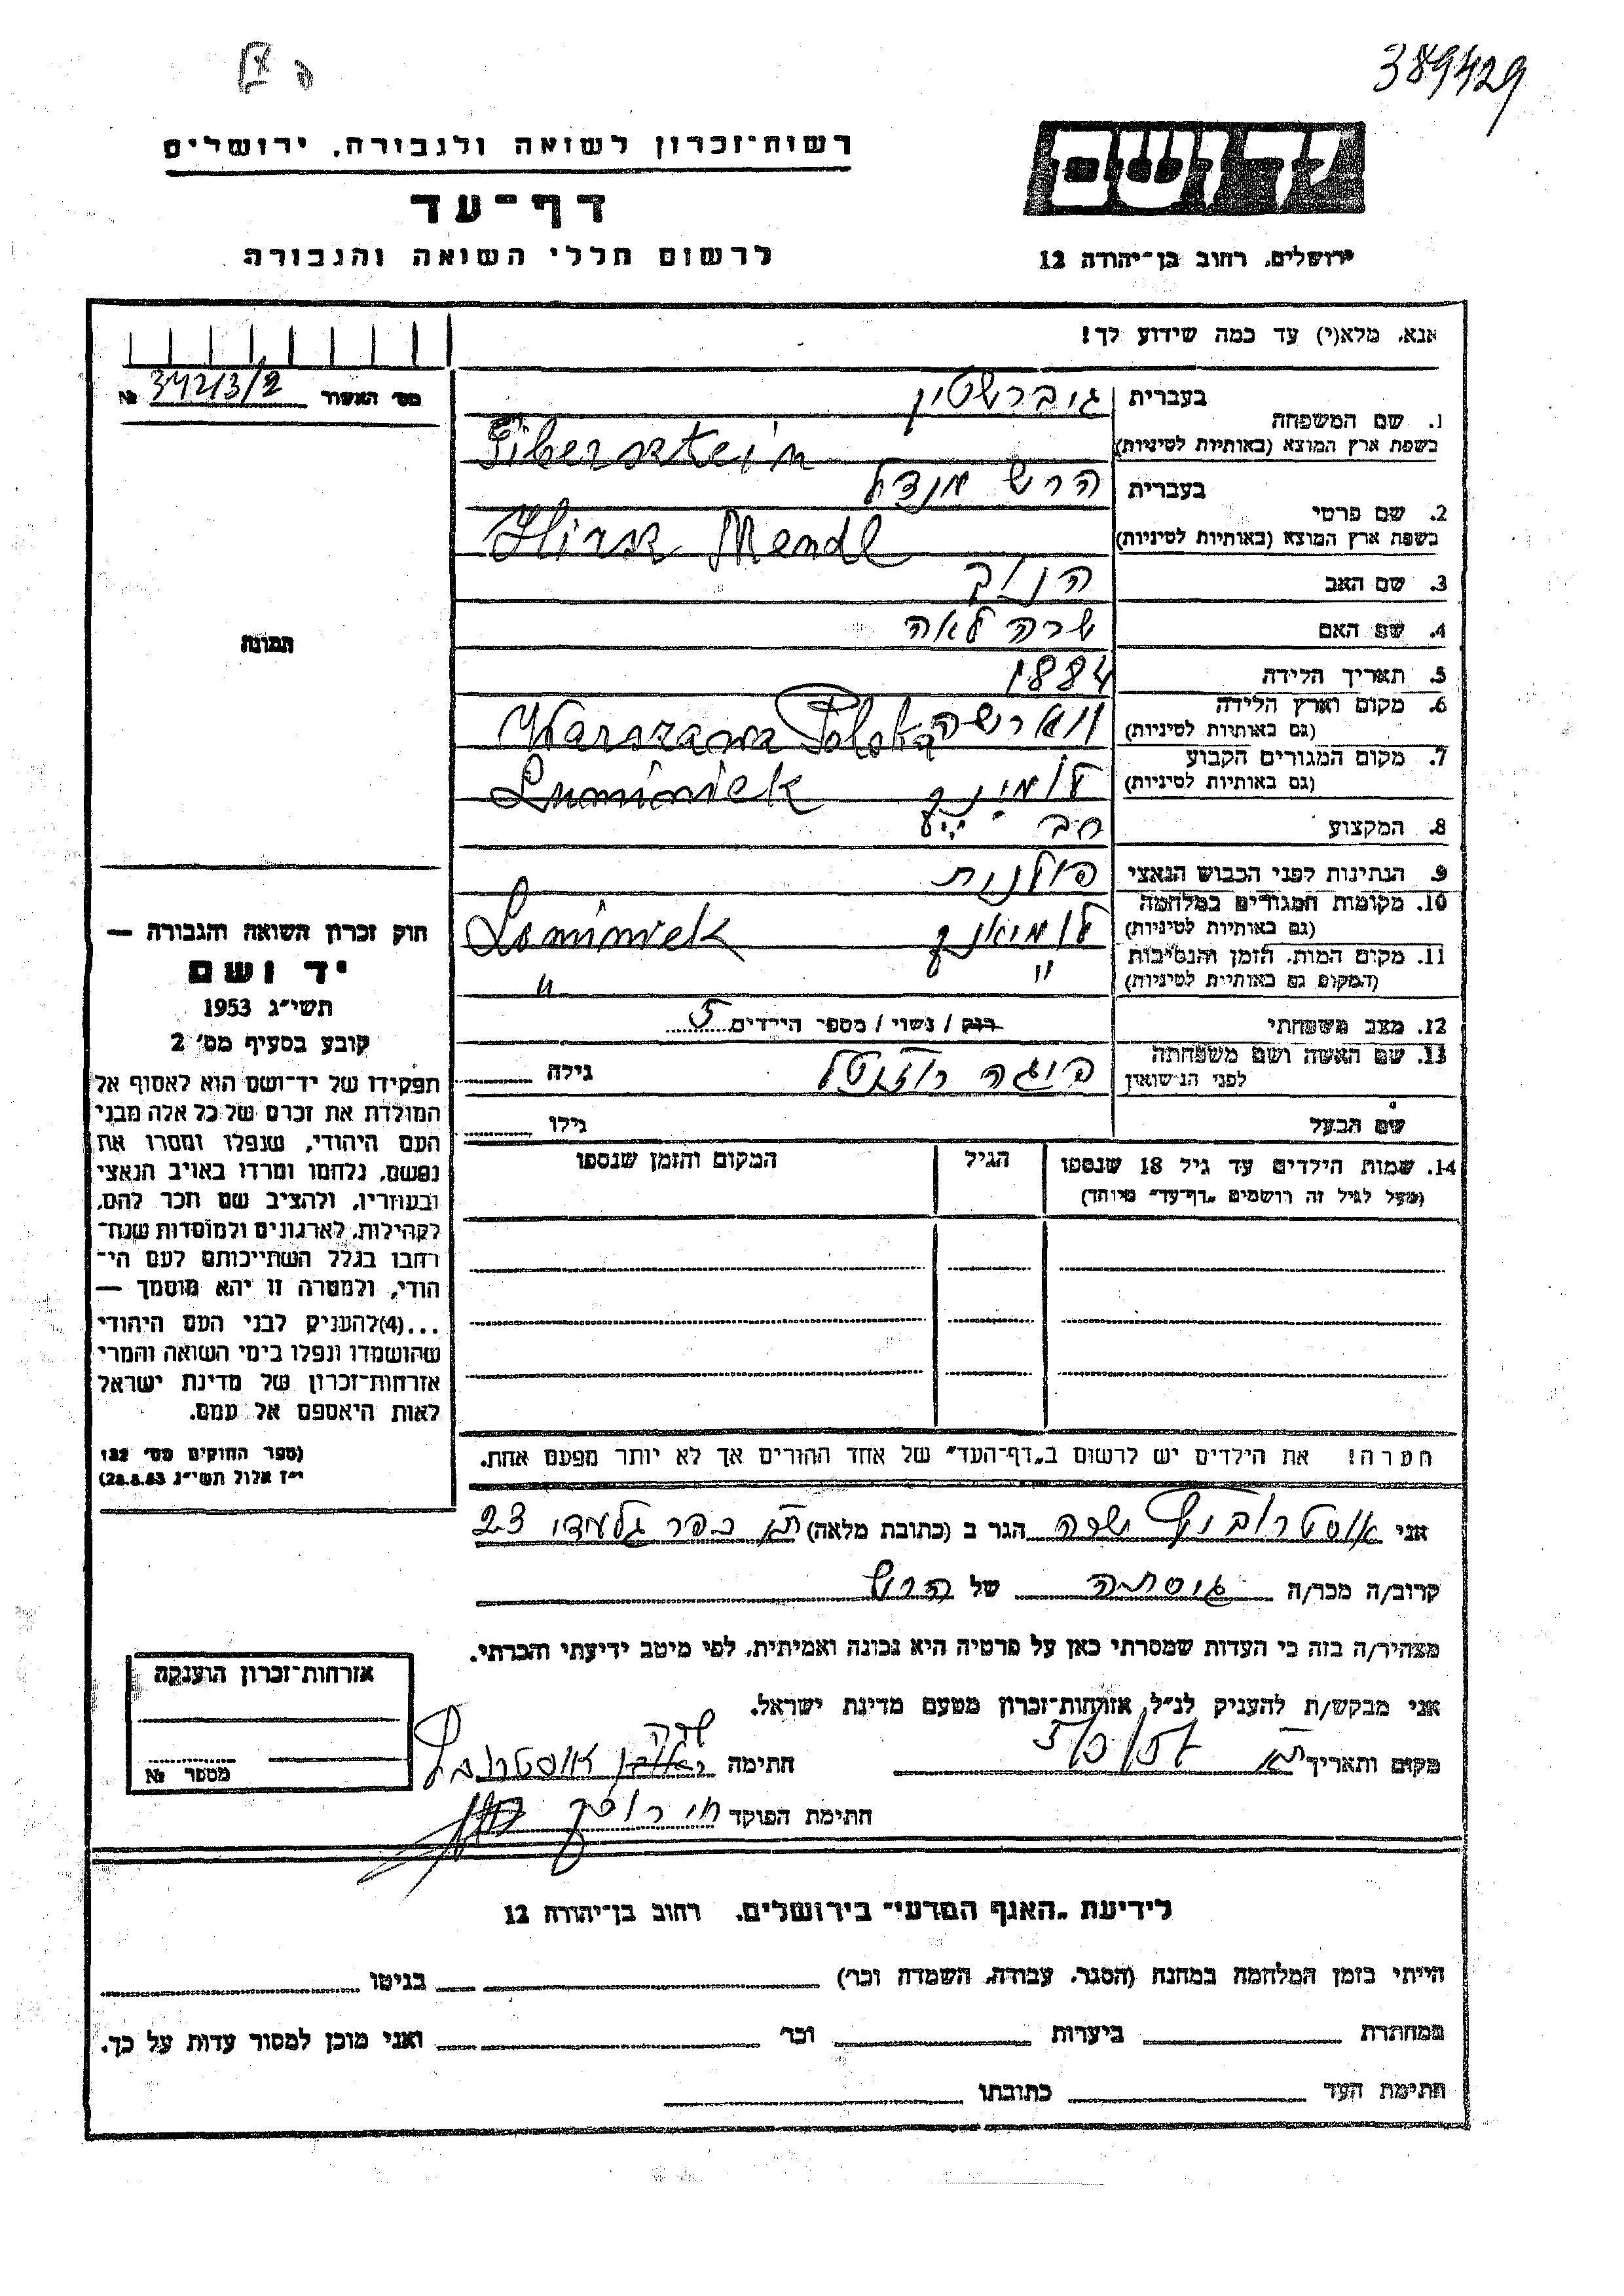 389429
רשות־זכרון לשואה ולגבורה, ירושלים
דף־עד
לרשום חללי השואה והגבורה
ירושלים, רחוב בן־יהודה 12
אנא, מלא(י) עד כמה שידוע לך!
מס׳ האשור 34213/2 №
1. שם המשפחה
בעברית
בשפת ארץ המוצא (באותיות לטיניות)
Gibersztein
2. שם פרטי
בעברית הרש מנדל
בשפת ארץ המוצא (באותיות לטיניות) Hirsz Mendl
3. שם האב
4. שם האם שרה לאה
5. תאריך הלידה 1884
6. מקום וארץ הלידה
(גם באותיות לטיניות)
ווארשה Warszawa Polska
7. מקום המגורים הקבוע
(גם באותיות לטיניות)
8. המקצוע
9. הנתינות לפני הכבוש הנאצי פולנית
10. מקומות המגורים במלחמה
(גם באותיות לטיניות)
Lominiek
11. מקום המות, הזמן והנסיבות
(המקום גם באותיות לטיניות)
" "
12. מצב משפחתי רוק / נשוי / מספר הילדים 5
13. שם האשה ושם משפחתה
לפני הנישואין
גילה
שם הבעל גילו
14. שמות הילדים עד גיל 18 שנספו הגיל המקום והזמן שנספו
(מעל לגיל זה רושמים „דף־עד” מיוחד)
הערה! את הילדים יש לרשום ב„דף־העד” של אחד ההורים אך לא יותר מפעם אחת.
תמונה
חוק זכרון השואה והגבורה —
יד ושם
תשי״ג 1953
קובע בסעיף מס׳ 2
תפקידו של יד־ושם הוא לאסוף אל
המולדת את זכרם של כל אלה מבני
העם היהודי, שנפלו ומסרו את
נפשם, נלחמו ומרדו באויב הנאצי
ובעוזריו, ולהציב שם וזכר להם,
לקהילות, לארגונים ולמוסדות שנח־
רבו בגלל השתייכותם לעם הי־
הודי, ולמטרה זו יהא מוסמך —
...(4)להעניק לבני העם היהודי
שהושמדו ונפלו בימי השואה והמרי
אזרחות־זכרון של מדינת ישראל
לאות היאספם אל עמם.
(ספר החוקים מס׳ 132
י״ז אלול תשי״ג 28.8.53)
אני שרה הגר ב (כתובת מלאה) ת״א כפר גלעדי 23
קרוב/ה מכר/ה גיסתה של הרש
מצהיר/ה בזה כי העדות שמסרתי כאן על פרטיה היא נכונה ואמיתית, לפי מיטב ידיעתי והכרתי.
אני מבקש/ת להעניק לנ״ל אזרחות־זכרון מטעם מדינת ישראל.
מקום ותאריך ת״א חתימה שרה
חתימת הפוקד
אזרחות־זכרון הוענקה
מספר №
לידיעת „האגף המדעי” בירושלים, רחוב בן־יהודה 12
הייתי בזמן המלחמה במחנה (הסגר, עבודה, השמדה וכו׳) בגיטו
במחתרת ביערות וכו׳ ואני מוכן למסור עדות על כך.
חתימת העד כתובתו